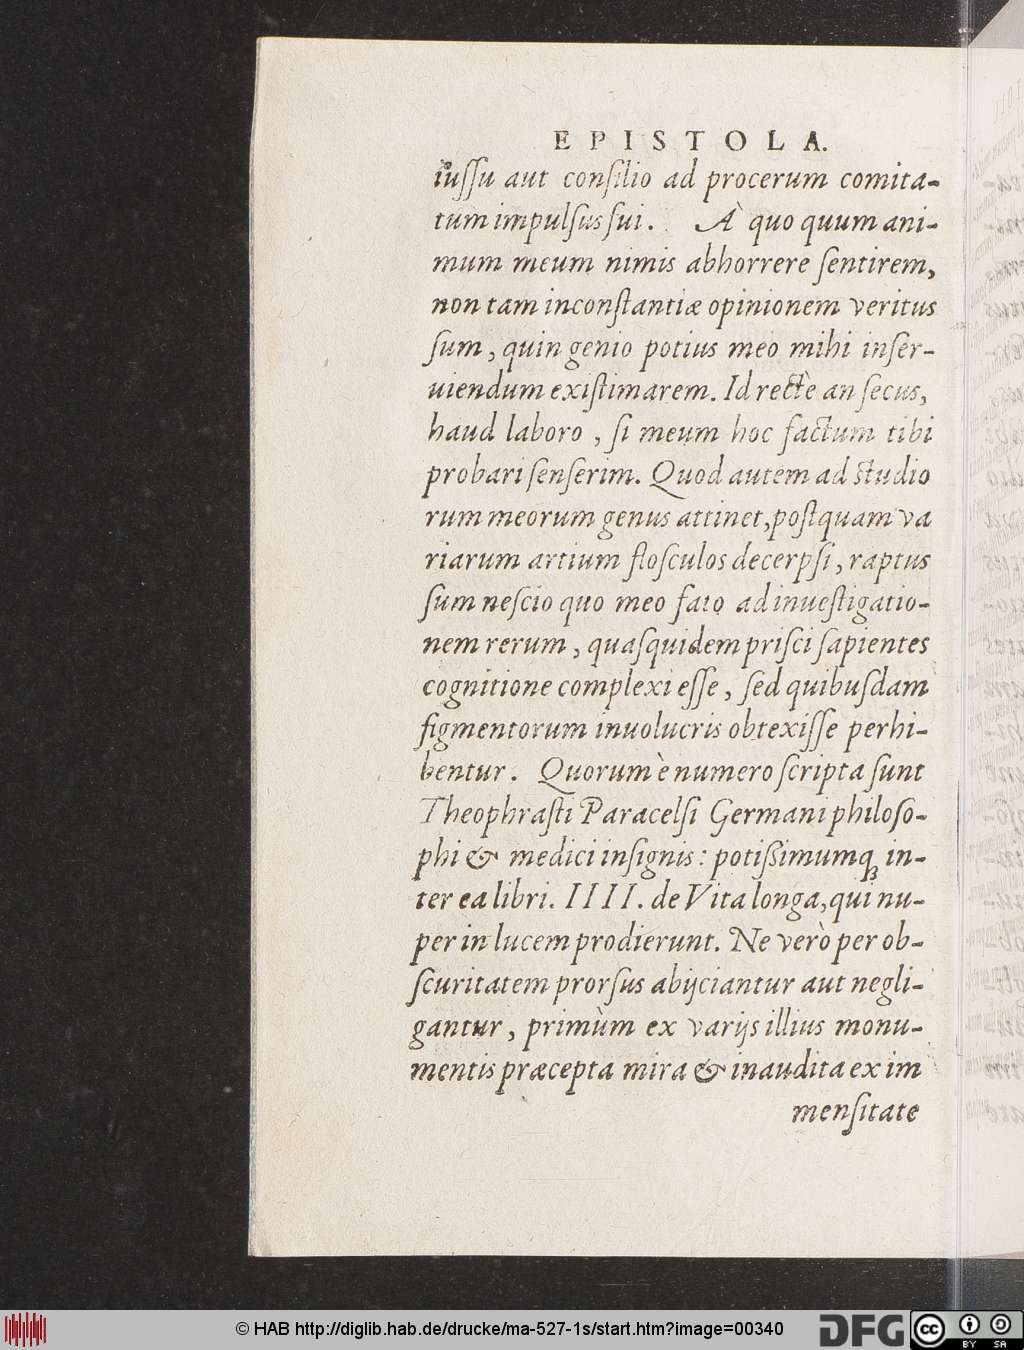 EPISTOLA.
iussu aut consilio ad procerum comita-
tum impulsus sui. À quo quum ani-
mum meum nimis abhorrere sentirem,
non tam inconstantiæ opinionem veritus
sum, quin genio potius meo mihi inser-
uiendum existimarem. Id rectè an secus,
haud laboro, si meum hoc factum tibi
probari senserim. Quod autem ad studio
rum meorum genus attinet, postquam va
riarum artium flosculos decerpsi, raptus
sum nescio quo meo fato ad inuestigatio-
nem rerum, quasquidem prisci sapientes
cognitione complexi esse, sed quibusdam
figmentorum inuolucris obtexisse perhi-
bentur. Quorum è numero scripta sunt
Theophrasti Paracelsi Germani philoso-
phi & medici insignis: potißimumq; in-
ter ea libri. IIII. de Vita longa, qui nu-
per in lucem prodierunt. Ne verò per ob-
scuritatem prorsus abijciantur aut negli-
gantur, primùm ex varijs illius monu-
mentis præcepta mira & inaudita ex im
mensitate
© HAB http://diglib.hab.de/drucke/ma-527-1s/start.htm?image=00340
DFG
cc BY SA